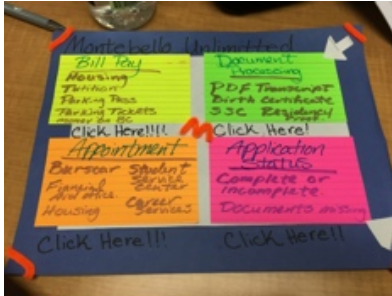 Montebello Unlimitted
Bill Pay
Housing
Tutition
Parking Pass
Parking Tickets
money on BC
Click Here!!!!
Document
Processing
PDF Transcript
Birth Certificate
SSC Residency
Click Here!
M
Appointment
Bursar
Financial
Aid office
Housing
Student
Service
Center
Career
Services
Click Here!!!
Application
Status
Complete or
incomplete
Documents missing
Click Here!!